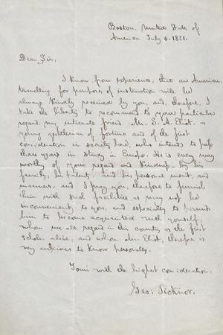 Boston, United States of
America July 6. 1821.
Dear Sir,
I know from experience, that an American
travelling for purposes of instruction will be
always kindly received by you, and, therefore, I
take the liberty to recommend to your particular
regard my intimate friend
young gentleman of fortune and of the first
consideration in society here, who intends to pass
three years in study in Europe. He is every way
worthy of your regard and kindness, by his
family, his talents, and his personal merit, and
manners, and I pray you, therefore, to furnish
him with such facilities as may not be
inconvenient to you, and especially to permit
him to become acquainted with yourself
whom we all regard in this country as the first
scholar alive, and whom Mr. Eliot, therefore is
very anxious to know personally.
Yours with the highest consideration.
Geo: Ticknor.